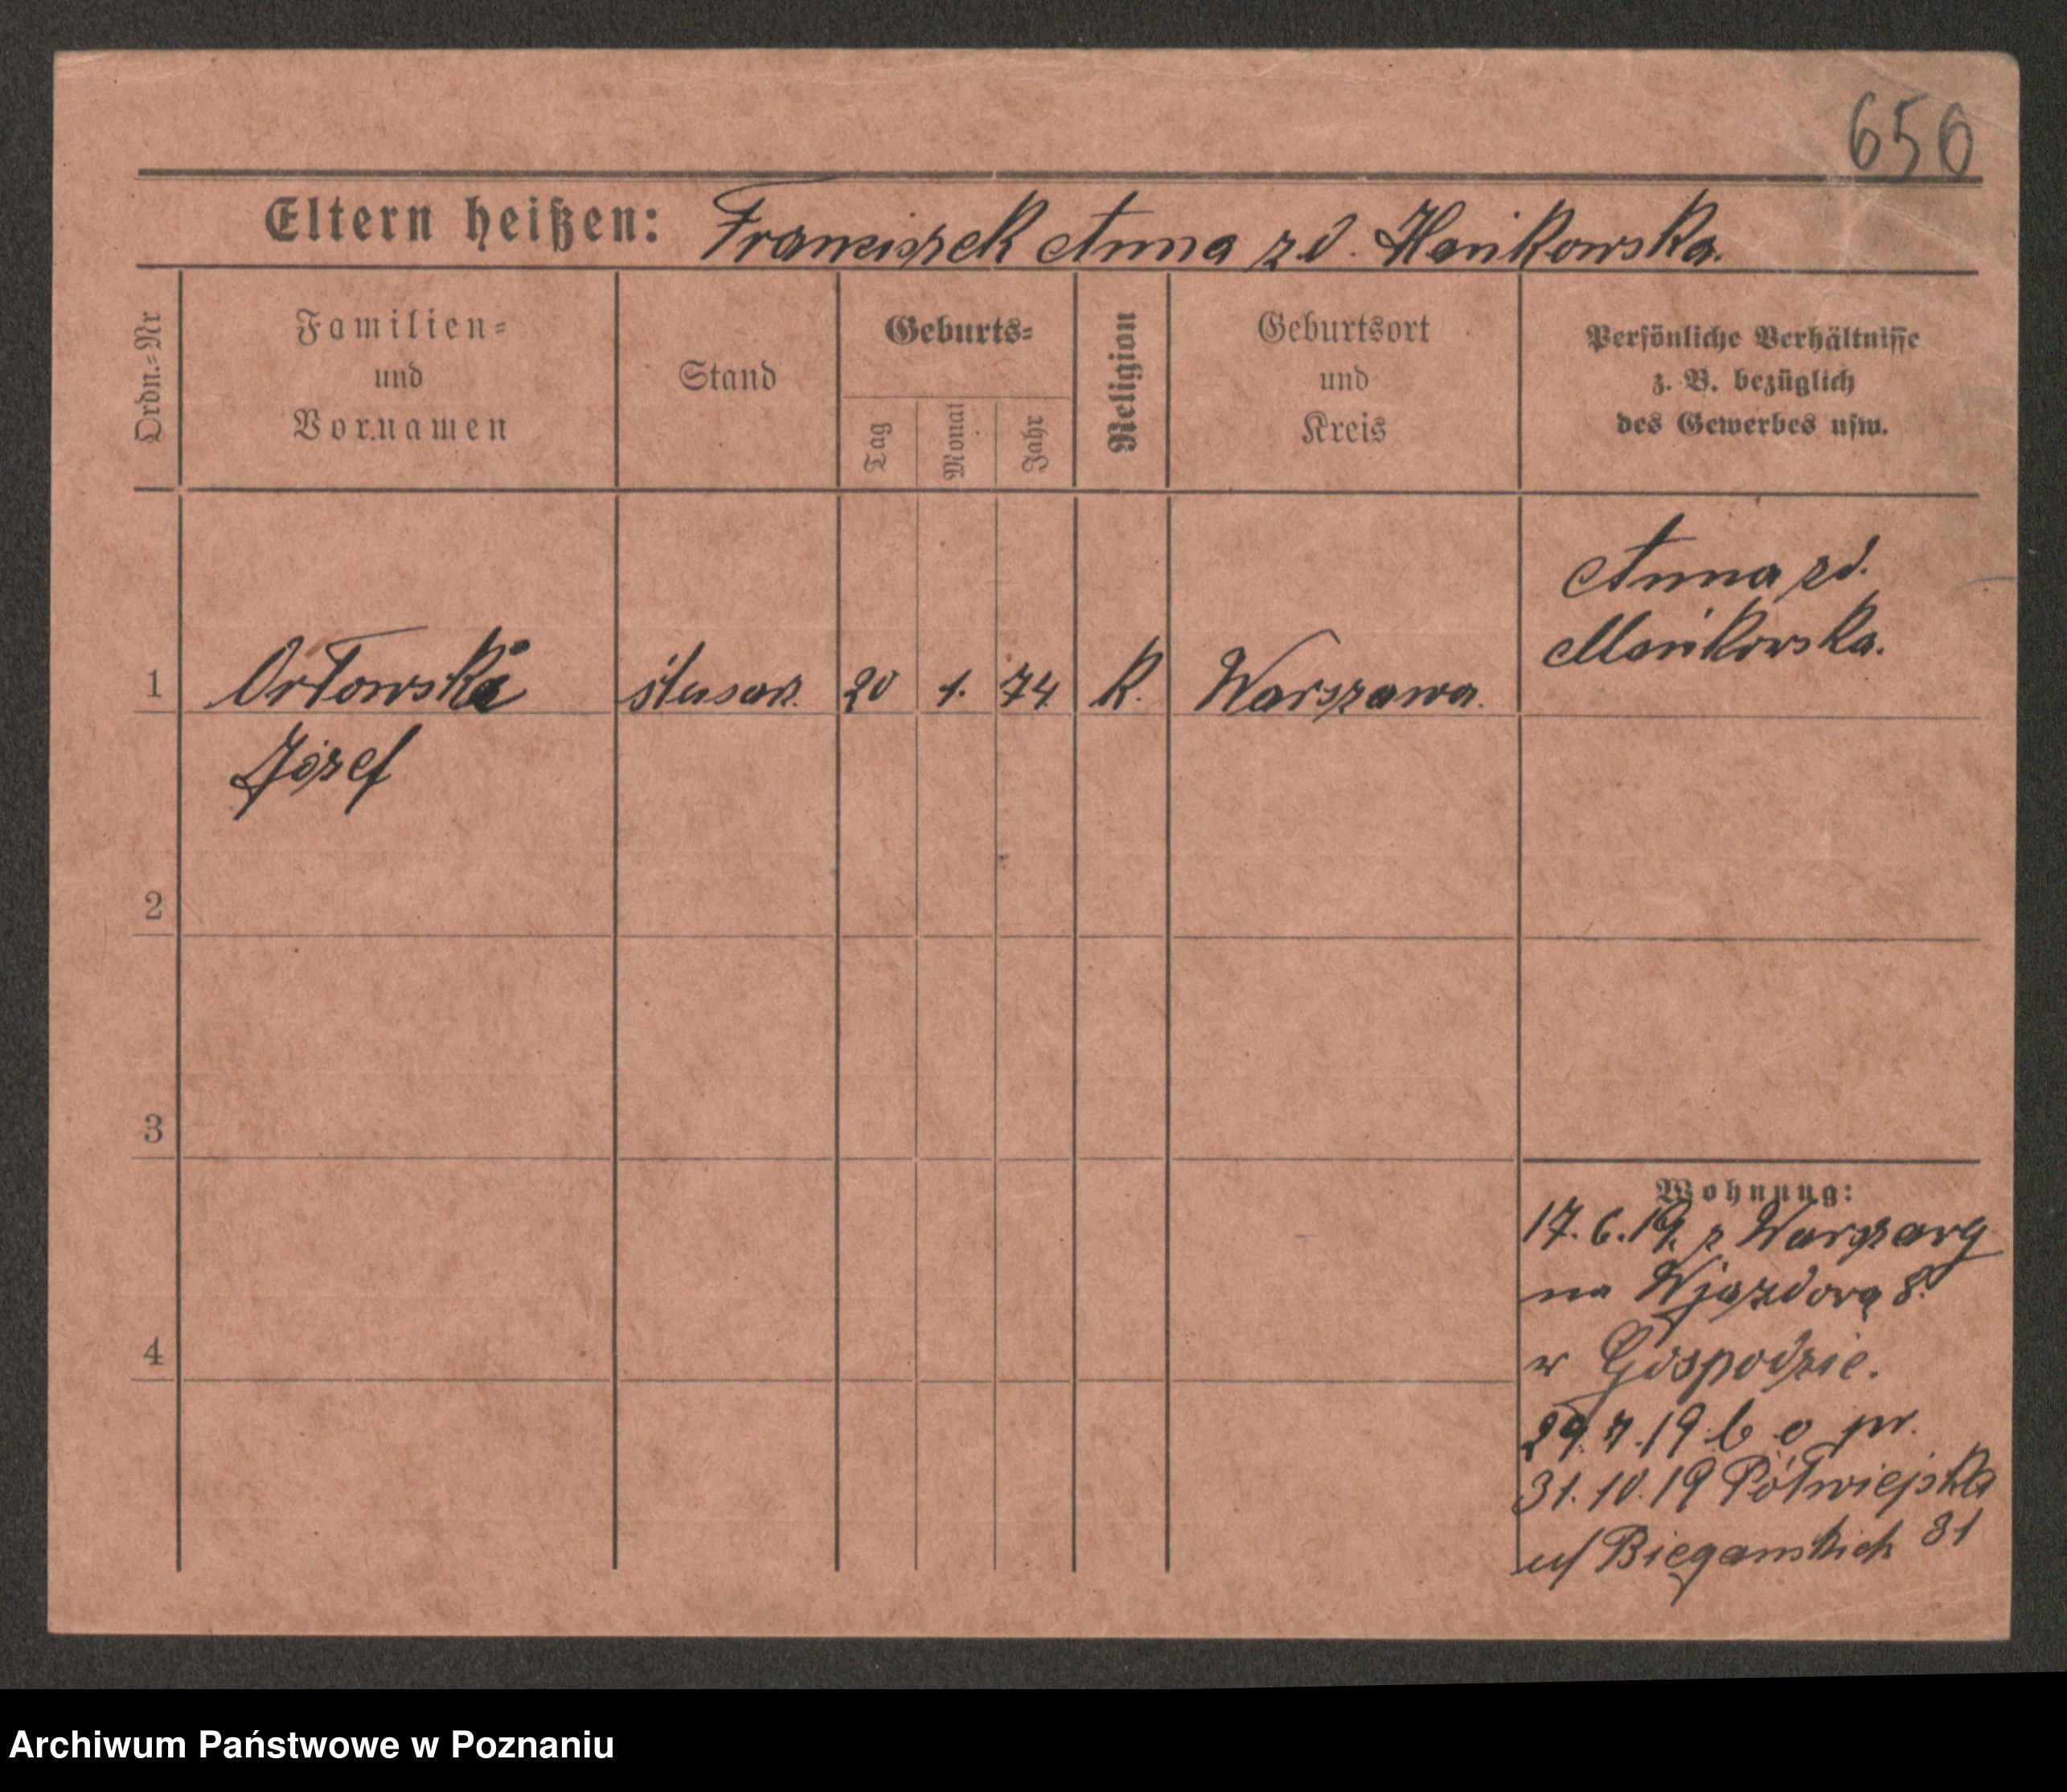 650
Eltern heißen: Franciszek Anna zd. Hańkowska.
Ordn.=Nr
Familien=
und
Vornamen
Stand
Geburts=
Tag
Monat
Jahr
Religion
Geburtsort
und
Kreis
Persönliche Verhältnisse
z. B. bezüglich
des Gewerbes usw.
Anna zd.
Mańkowska.
1 Orłowski ślusarz. 20 1. 74 K. Warszawa.
Józef
2
3
4
Wohnung:
17.6.19. z Warszawy
na Wjazdową 8.
w Gospodzie.
29.7.19 b o pr.
31.10.19 Półwiejska
u/ Bieganskich 31
Archiwum Państwowe w Poznaniu